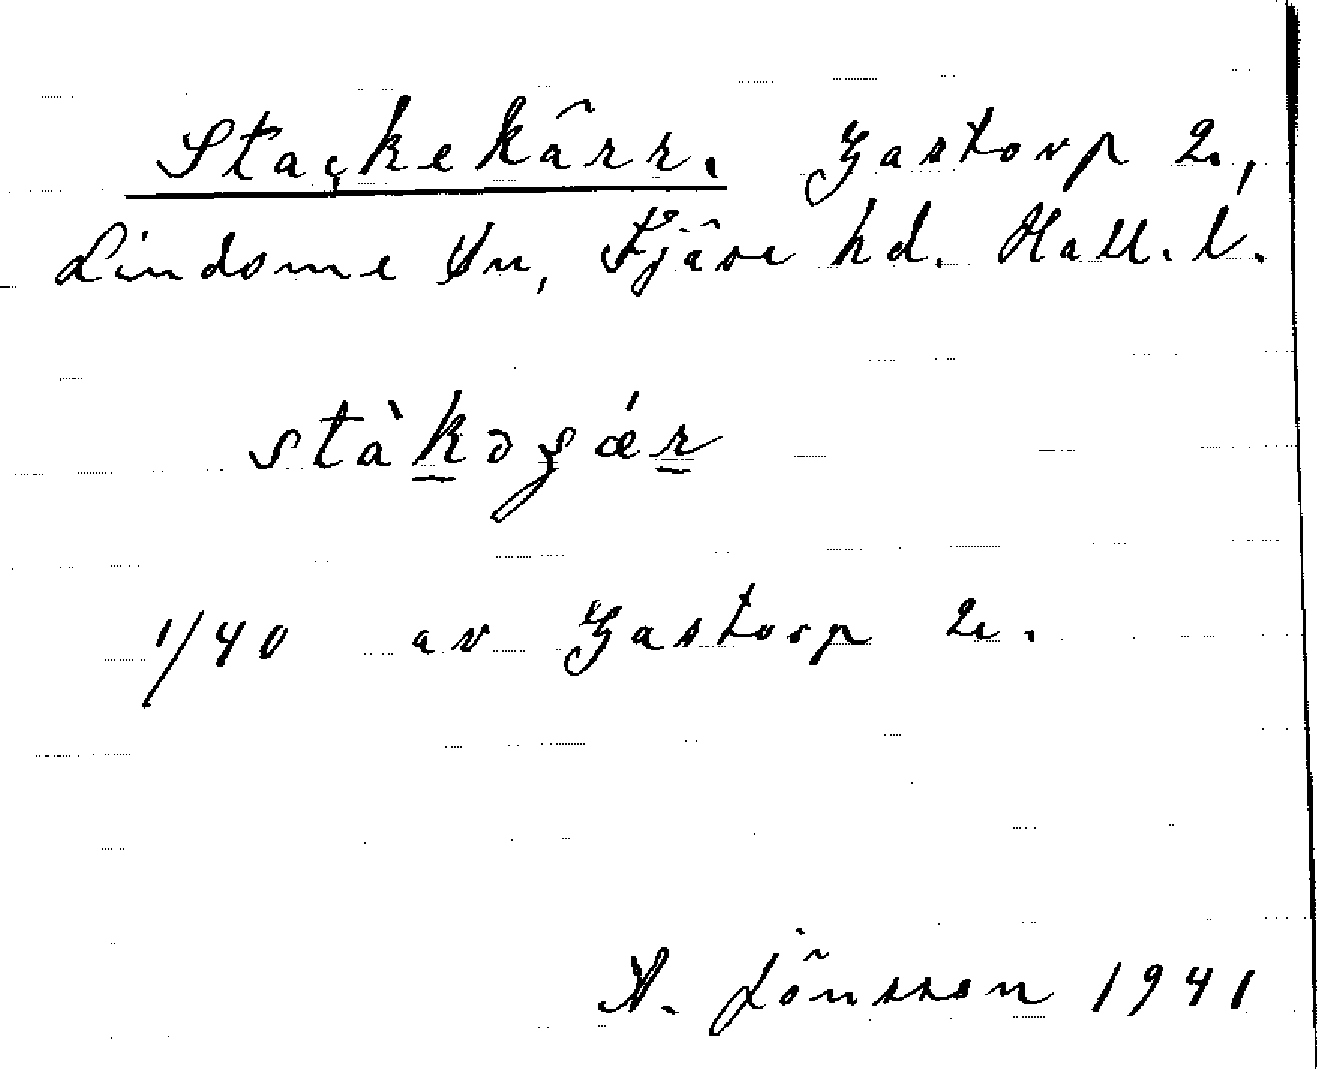 Stackekärr. Gastorp 2,
Lindome sn, Fjäre hd. Hall. l.
stàkəʂǽr
1/40 av Gastorp 2.
A. Jönsson 1941